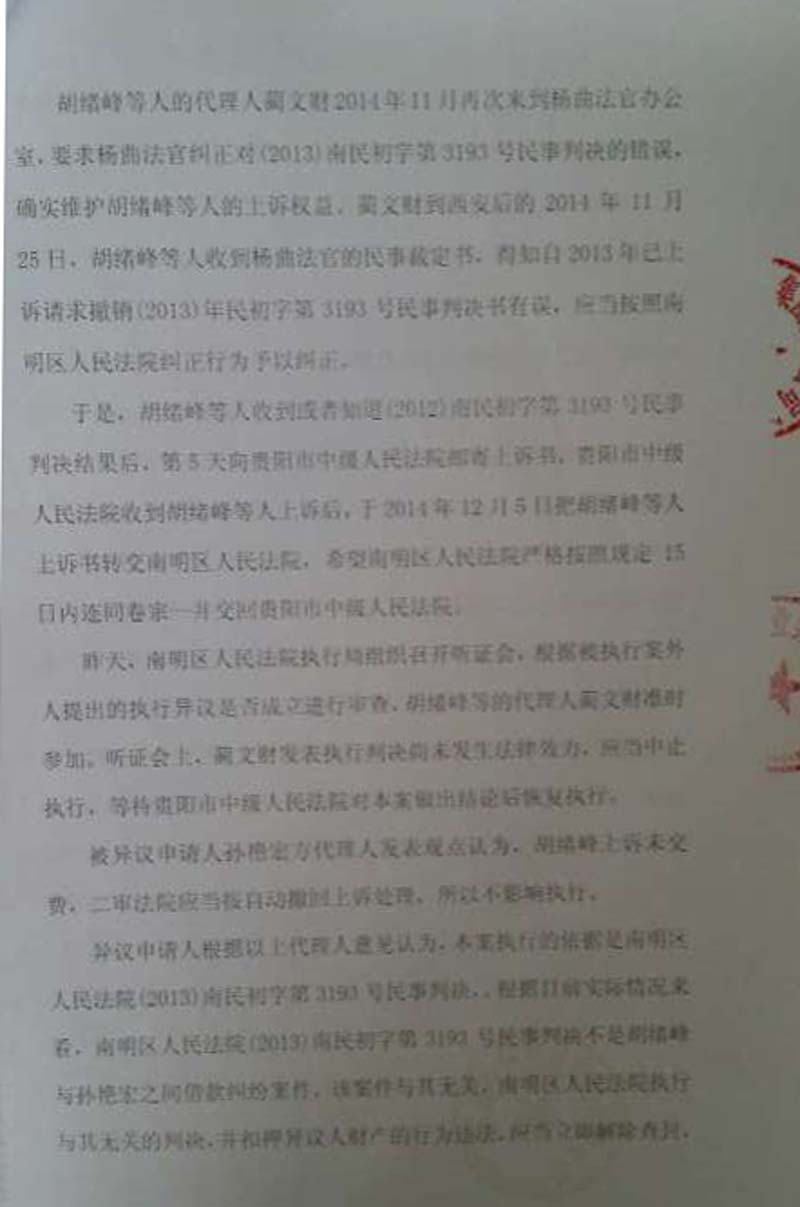 胡绪峰等人的代理人蔺文财2014年11月再次来到杨曲法官办公
室，要求杨曲法官纠正对(2013)南民初字第3193号民事判决的错误，
确实维护胡绪峰等人的上诉权益。蔺文财到西安后的2014年11月
25日，胡绪峰等人收到杨曲法官的民事裁定书，得知自2013年已上
诉请求撤销(2013)年民初字第3193号民事判决书有误，应当按照南
明区人民法院纠正行为予以纠正。
于是，胡绪峰等人收到或者知道(2012)南民初字第3193号民事
判决结果后，第5天向贵阳市中级人民法院邮寄上诉书，贵阳市中级
人民法院收到胡绪峰等人上诉后，于2014年12月5日把胡绪峰等人
上诉书转交南明区人民法院，希望南明区人民法院严格按照规定15
日内连同卷宗一并交回贵阳市中级人民法院。
昨天，南明区人民法院执行局组织召开听证会，根据被执行案外
人提出的执行异议是否成立进行审查，胡绪峰等的代理人蔺文财准时
参加。听证会上，蔺文财发表执行判决尚未发生法律效力，应当中止
执行，等待贵阳市中级人民法院对本案做出结论后恢复执行。
被异议申请人孙艳宏方代理人发表观点认为，胡绪峰上诉未交
费，二审法院应当按自动撤回上诉处理，所以不影响执行。
异议申请人根据以上代理人意见认为，本案执行的依据是南明区
人民法院(2013)南民初字第3193号民事判决，，根据目前实际情况来
看，南明区人民法院(2013)南民初字第3193号民事判决不是胡绪峰
与孙艳宏之间借款纠纷案件，该案件与其无关，南明区人民法院执行
与其无关的判决，并扣押异议人财产的行为违法，应当立即解除查封，